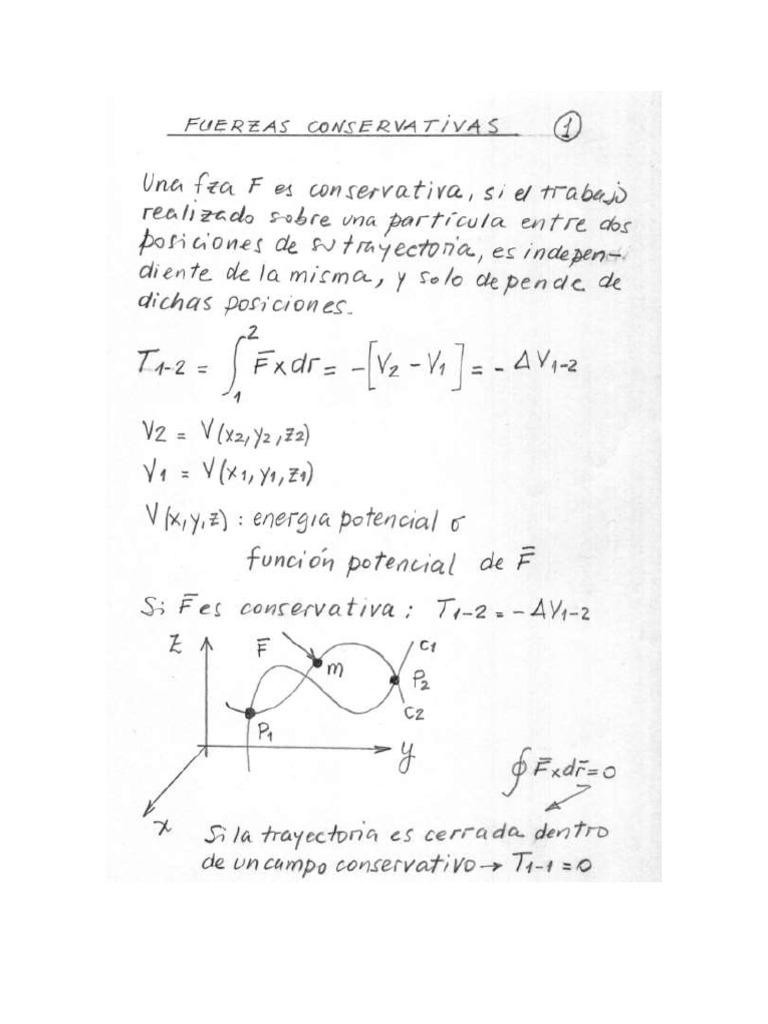 FUERZAS CONSERVATIVAS ①
Una fza F es conservativa, si el trabajo
realizado sobre una partícula entre dos
posiciones de su trayectoria, es indepen-
diente de la misma, y solo depende de
dichas posiciones.
T1-2 = ∫₁² F̄ x dr = -[V2 - V1] = - ΔV1-2
V2 = V(x2, y2, z2)
V1 = V(x1, y1, z1)
V(x,y,z) : energia potencial o
función potencial de F̄
Si F̄ es conservativa: T1-2 = - ΔV1-2
Z F̄ m C1
P2
C2
P1
y
∮ F̄ x dr̄ = 0
x
Si la trayectoria es cerrada dentro
de un campo conservativo → T1-1 = 0